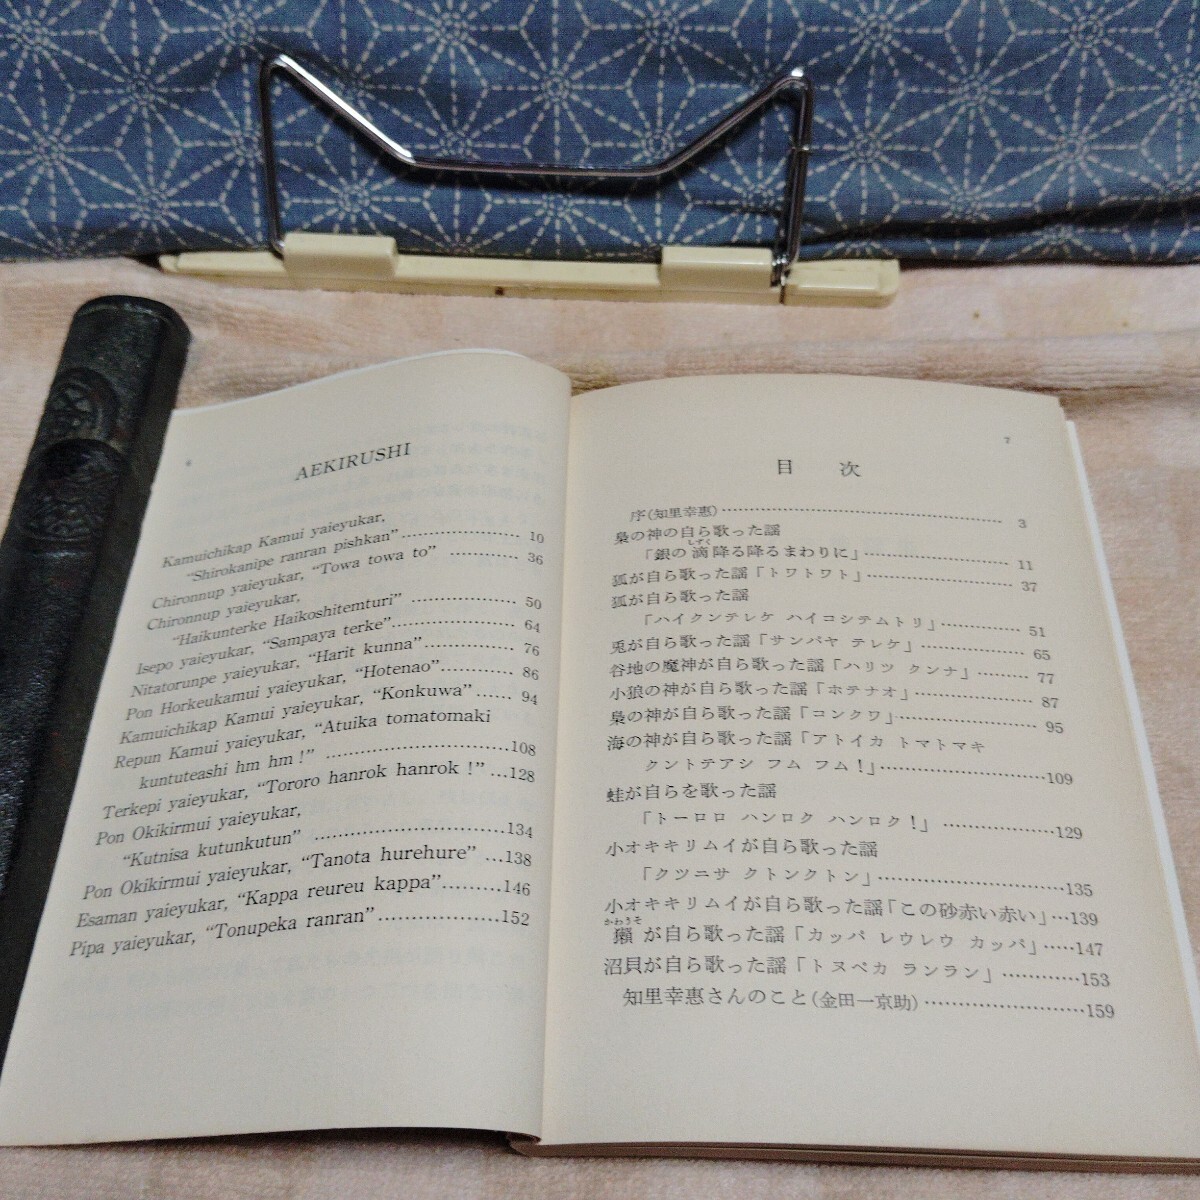 6
AEKIRUSHI
Kamuichikap Kamui yaieyukar,
“Shirokanipe ranran pishkan”………………… 10
Chironnup yaieyukar, “Towa towa to” ………… 36
Chironnup yaieyukar,
“Haikunterke Haikoshitemturi” ……………… 50
Isepo yaieyukar, “Sampaya terke”………………… 64
Nitatorunpe yaieyukar, “Harit kunna” …………… 76
Pon Horkeukamui yaieyukar, “Hotenao”………… 86
Kamuichikap Kamui yaieyukar, “Konkuwa”…… 94
Repun Kamui yaieyukar, “Atuika tomatomaki
kuntuteashi hm hm !” ……………………………108
Terkepi yaieyukar, “Tororo hanrok hanrok !” …128
Pon Okikirmui yaieyukar,
“Kutnisa kutunkutun” ……………………………134
Pon Okikirmui yaieyukar, “Tanota hurehure” …138
Esaman yaieyukar, “Kappa reureu kappa”………146
Pipa yaieyukar, “Tonupeka ranran”………………152
7
目 次
序(知里幸惠)…………………………………………… 3
梟の神の自ら歌った謡
「銀の滴降る降るまわりに」……………………… 11
しずく
狐が自ら歌った謡「トワトワト」………………………… 37
狐が自ら歌った謡
「ハイクンテレケ ハイコシテムトリ」…………… 51
兎が自ら歌った謡「サンパヤ テレケ」……………… 65
谷地の魔神が自ら歌った謡「ハリツ クンナ」………… 77
小狼の神が自ら歌った謡「ホテナオ」………………… 87
梟の神が自ら歌った謡「コンクワ」…………………… 95
海の神が自ら歌った謡「アトイカ トマトマキ
クントテアシ フム フム!」……………………109
蛙が自らを歌った謡
「トーロロ ハンロク ハンロク!」 ………………129
小オキキリムイが自ら歌った謡
「クツニサ クトンクトン」…………………………135
小オキキリムイが自ら歌った謡「この砂赤い赤い」…139
かわうそ
獺が自ら歌った謡「カッパ レウレウ カッパ」……147
沼貝が自ら歌った謡「トヌペカ ランラン」…………153
知里幸惠さんのこと(金田一京助)……………………159